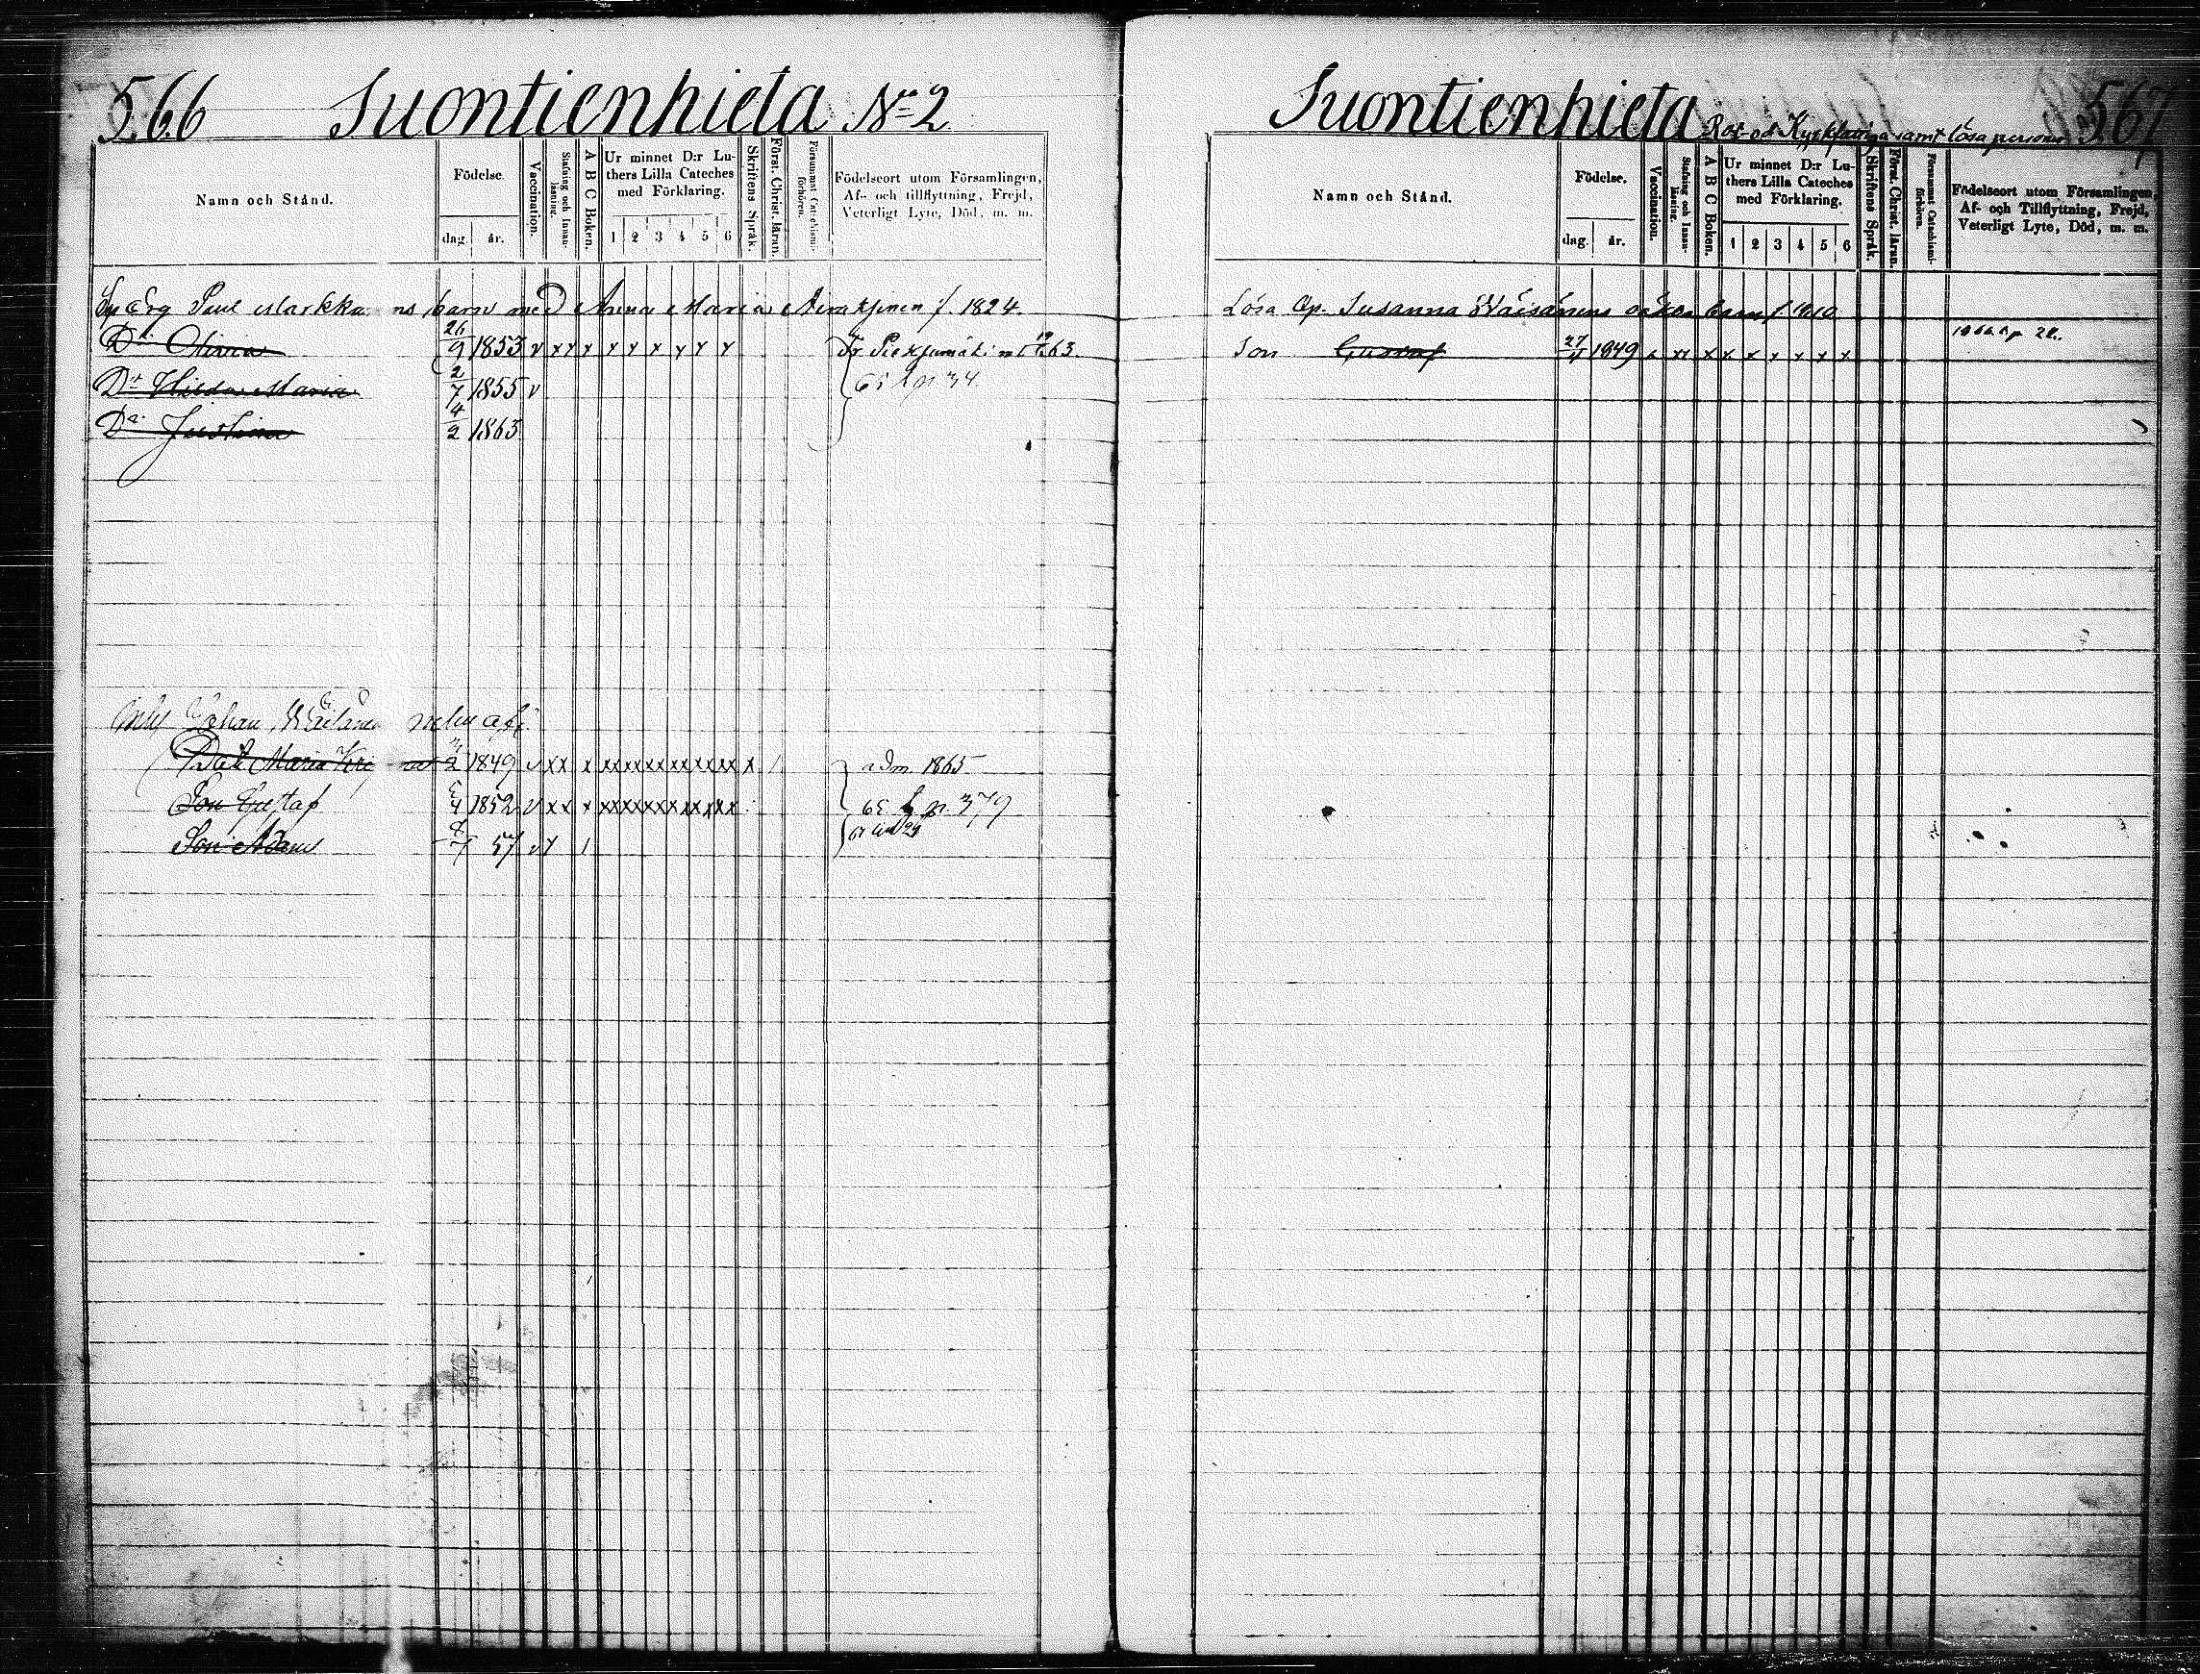 566 Suontienhieta No 2
Namn och Stånd.
Födelse.
dag. år.
Vaccination.
Stafning och Innan-läsning.
A B C Boken.
Ur minnet D:r Lu-
thers Lilla Cateches
med Förklaring.
1 2 3 4 5 6
Skriftens Språk.
Först. Christ. läran.
Försummat Catechismi-förhören.
Födelseort utom Församlingen,
Af- och tillflyttning, Frejd,
Veterligt Lyte, Död, m. m.
Paul Markka ns barn med Anna Maria f. 1824.
Dr Olivia 26/9 1853 v xx x x x x x x x Fr. Pieksämäki 63.
Dr Hilda Maria 2/7 1855 v 65 p 34
Dr Justina 4/2 1863
Johan
Dotr Maria 2 1849 v xx x xx xx xx xx xx xx x 1 adm. 1865
Son Gustaf 4 1852 v xx x xx xx xx xx xx xx 65 p. 379
Son Adam 7 57 v x 1
Suontienhieta samt lösa personer 567
Namn och Stånd.
Födelse.
dag. år.
Vaccination.
Stafning och Innan-läsning.
A B C Boken.
Ur minnet D:r Lu-
thers Lilla Cateches
med Förklaring.
1 2 3 4 5 6
Skriftens Språk.
Först. Christ. läran.
Försummat Catechismi-förhören.
Födelseort utom Församlingen,
Af- och Tillflyttning, Frejd,
Veterligt Lyte, Död, m. m.
Lösa Qp. Susanna Wäisänens oäkta barn f. 1810
Son Gustaf 27 1849 xx x x x x x x x